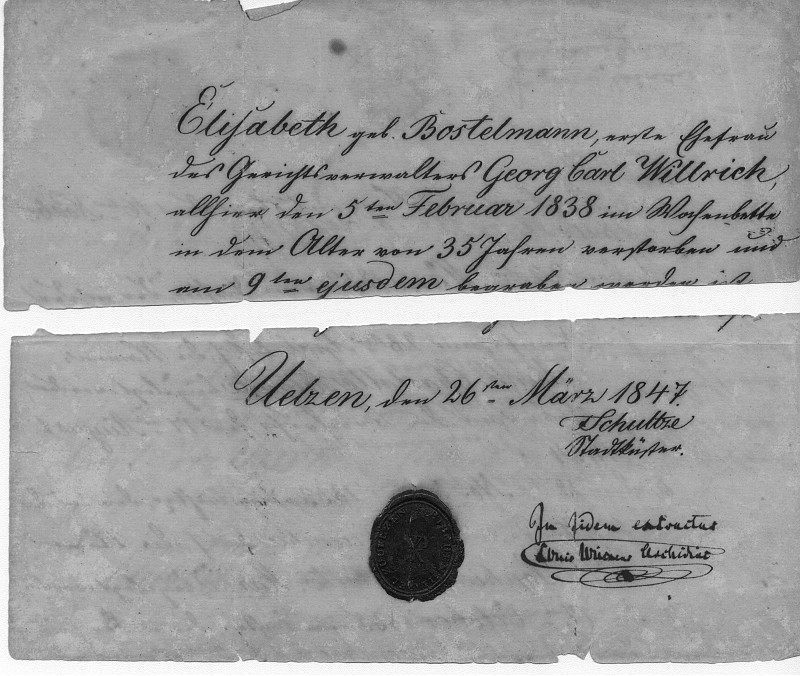 Elisabeth geb. Bostelmann, erste Ehefrau
des Gerichtsverwalters Georg Carl Willrich,
allhier den 5ten Februar 1838 im Wochenbette
in dem Alter von 35 Jahren verstorben und
am 9ten ejusdem begraben worden ist
Uelzen, den 26sten März 1847.
Schultze
Stadtküster.
In fidem extractus